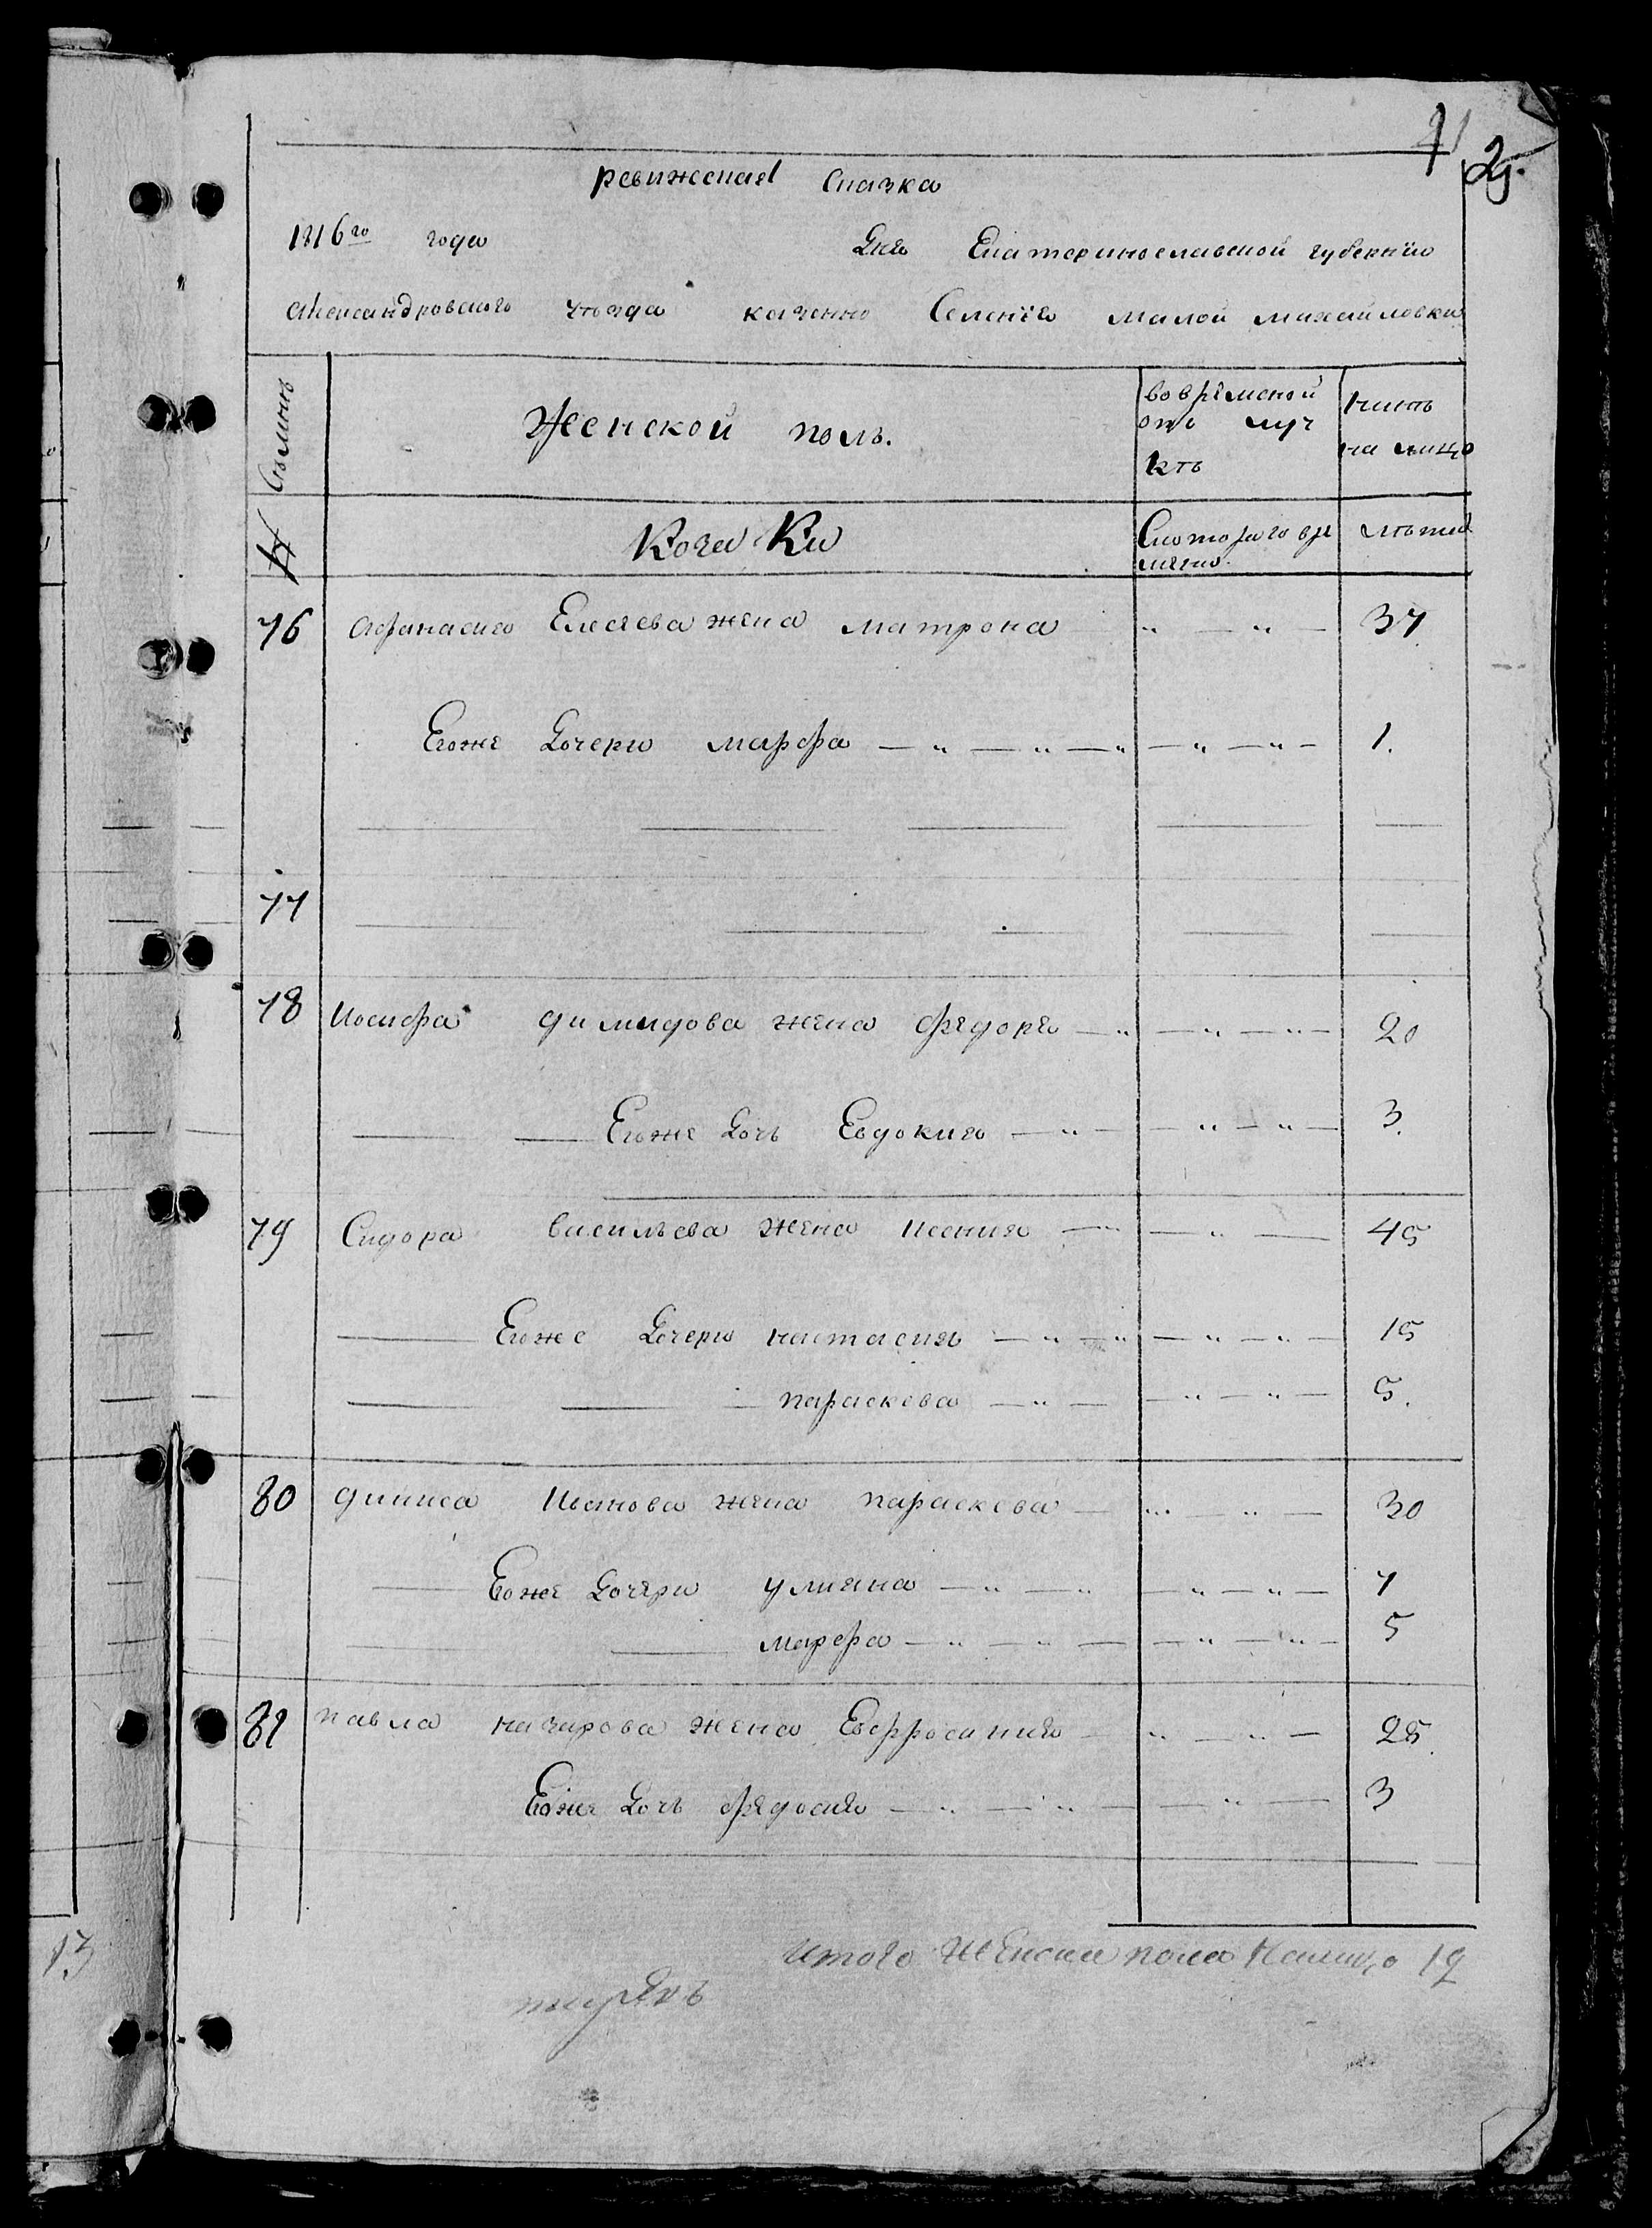 29.
ревижеская Сказка
1816го года Дня Екатеринославской губернiи
Александровского уезда казенно Селенiя малой михайловки
Семьи Женской полъ. во временой отлучке ныне на лицо
№ Козаки С которого времени летъ
76 Афанасия Елисеева жена матрона „ — „ — 37
Егоже Дочери марфа — „ — „ — „ — „ — „ — 1.
77
78 Иосифа димидова жена федоря — „ — „ — „ — 20
Егоже Дочь Евдокия — „ — — „ — „ — 3.
79 Сидора васильева жена ксения — — „ — 45
Егоже Дочери настасия — „ — „ — „ — „ — 15
параскева — „ — — „ — „ — 5.
80 дениса Иванова жена параскева — „ — „ — 30
Егоже Дочери улияна — „ — „ — „ — „ — 7
марфа — „ — „ — — „ — „ — 5
81 павла назарова жена Евфросиния „ — „ — 25
Егоже Дочь федосия — „ — „ — — „ — 3
итого женска пола налицо 12
13